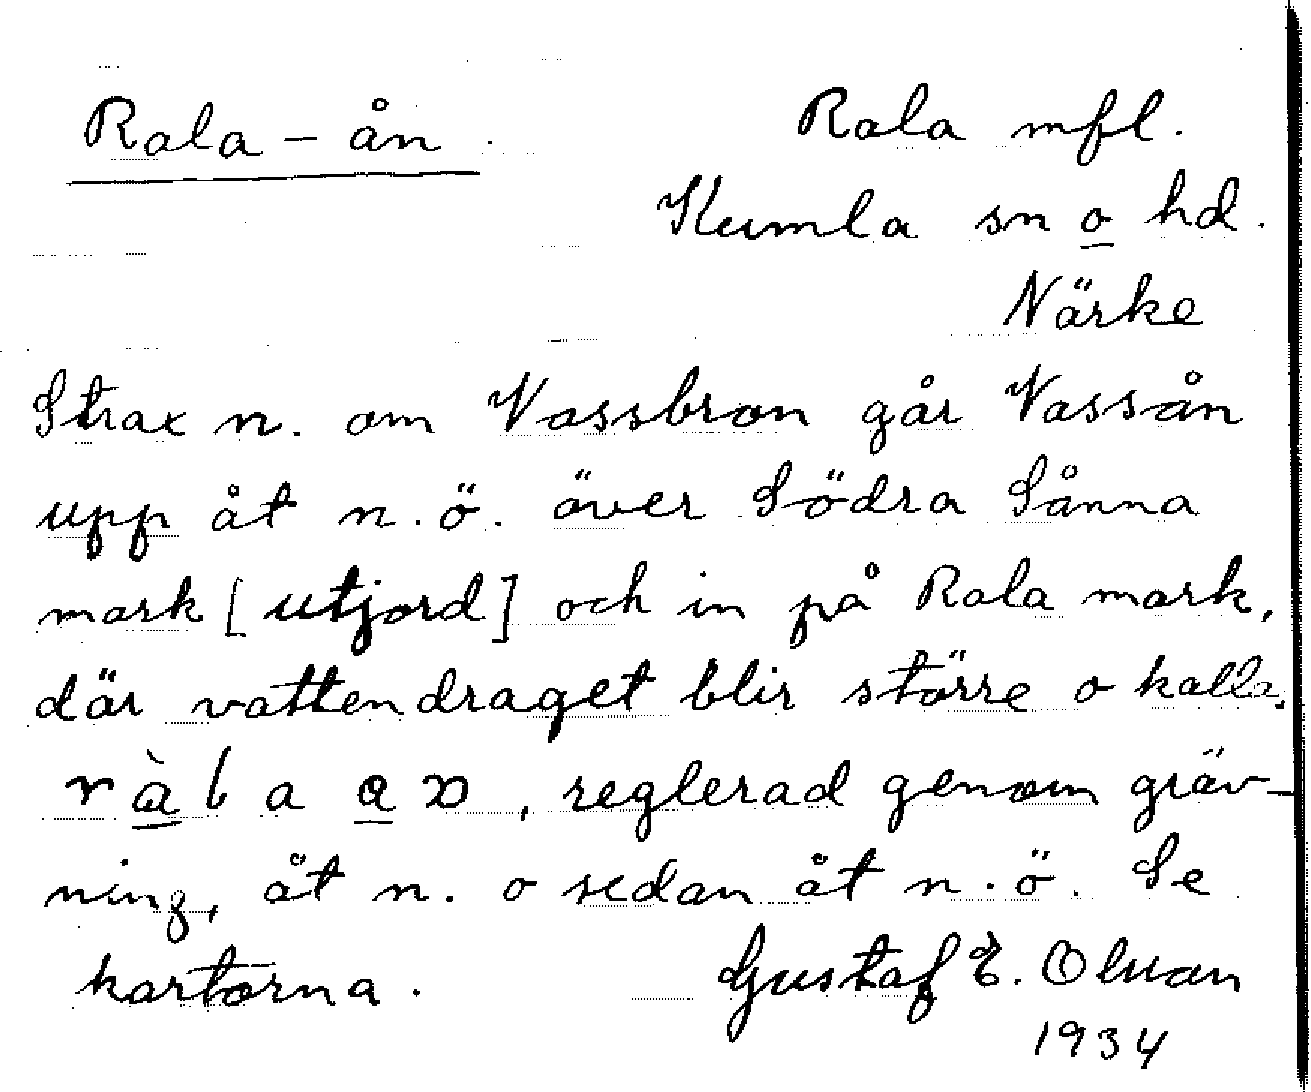 Rala-ån. Rala mfl.
Kumla sn o hd.
Närke
Strax n. om Vassbron går Vassån
upp åt n.ö. över Södra Sånna
mark [utjord] och in på Rala mark,
där vattendraget blir större o kallas
reglerad genom gräv-
ning, åt n. o sedan åt n.ö. Se
kartorna. Gustaf E.
1934